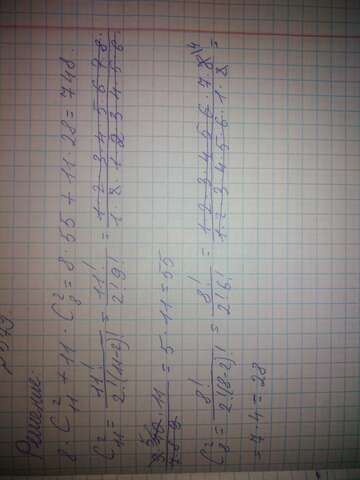 Решение:
8 · C²₁₁ + 11 · C²₈ = 8 · 55 + 11 · 28 = 748.
C²₁₁ = 11! / 2!(11-2)! = 11! / 2!9! = 1 · 2 · 3 · 4 · 5 · 6 · 7 · 8 · / 1 · 2 · 1 · 2 · 3 · 4 · 5 · 6 ·
9 · 10 · 11 / 7 · 8 · 9 = 5 · 11 = 55
C²₈ = 8! / 2!(8-2)! = 8! / 2!6! = 1 · 2 · 3 · 4 · 5 · 6 · 7 · 8 4 / 1 · 2 · 3 · 4 · 5 · 6 · 1 · 2 =
= 7 · 4 = 28